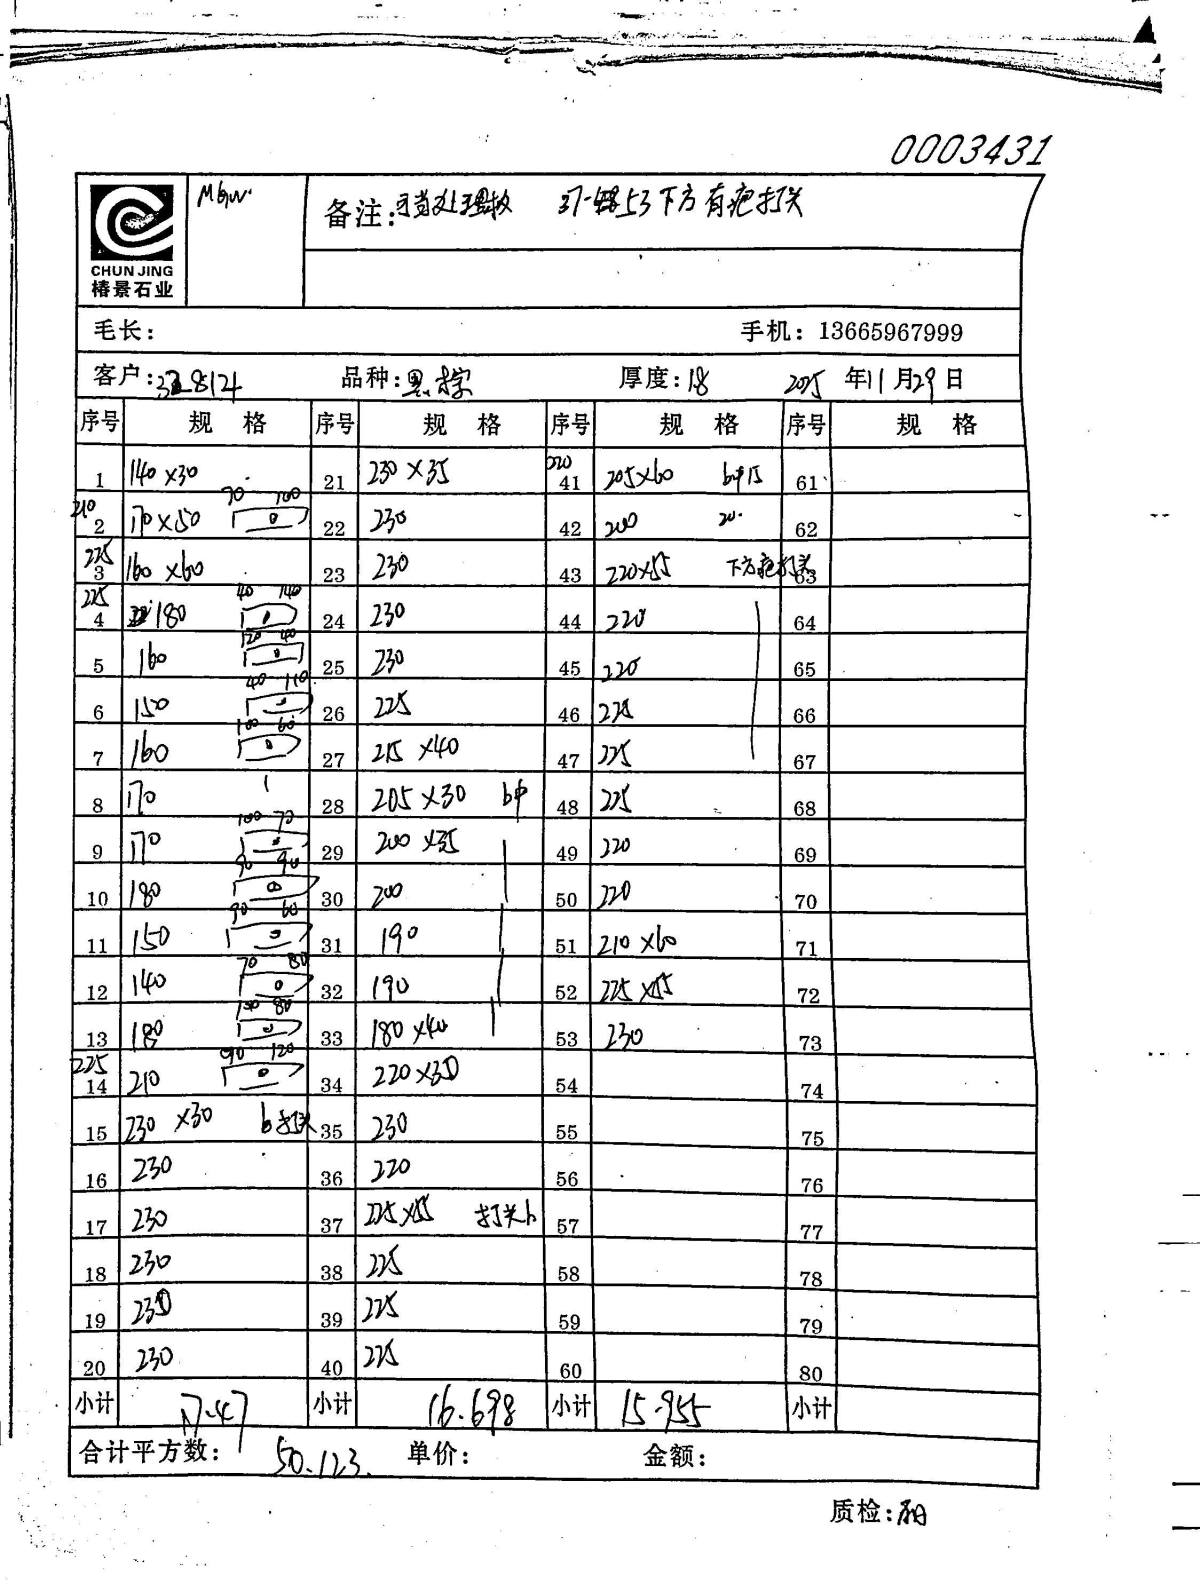 0003431
CHUN JING
椿景石业
备注: 37-53下方有疤打关
毛长:
手机: 13665967999
客户: 品种: 厚度: 18 2025 年 11 月 29 日
序号 规 格 序号 规 格 序号 规 格 序号 规 格
1 140×30 21 230×35 220 41 205×60 b中15 61
210 2 170×50 70 100 22 230 42 200 20 62
225 3 160×60 23 230 43 220×55 下方疤打关 63
225 4 180 40 140 24 230 44 220 64
5 160 120 40 25 230 45 220 65
6 150 40 110 26 225 46 225 66
7 160 100 60 27 215×40 47 225 67
8 170 28 205×30 b中 48 225 68
9 170 100 70 29 200×35 49 220 69
10 180 90 90 30 200 50 220 70
11 150 90 60 31 190 51 210×60 71
12 140 70 80 32 190 52 225×55 72
13 180 100 80 33 180×40 53 230 73
225 14 210 90 120 34 220×35 54 74
15 230×30 b打关 35 230 55 75
16 230 36 220 56 76
17 230 37 225×55 打关b 57 77
18 230 38 225 58 78
19 230 39 225 59 79
20 230 40 225 60 80
小计 17.47 小计 16.698 小计 15.955 小计
合计平方数: 50.123 单价: 金额:
质检: